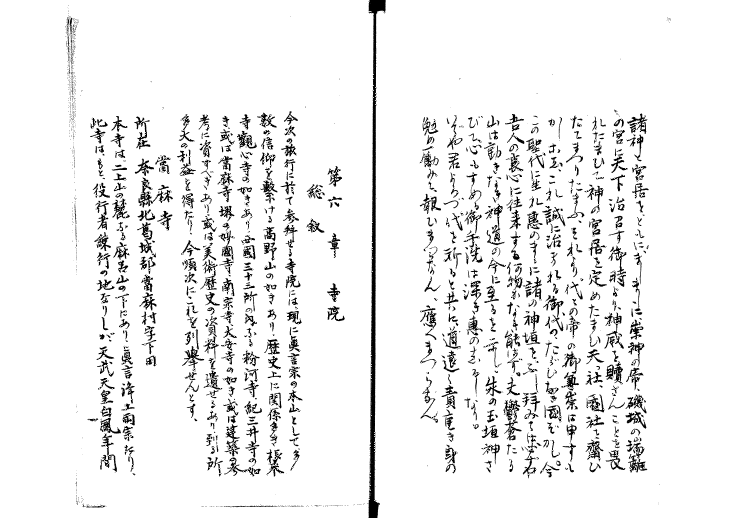 諸神と宮居をともにしましに崇神の帝磯城の瑞籬
の宮に天下治召す御時より神威を瀆さんことを畏
れたまひて神の宮居を定めたまひ天つ社國つ社を齋ひ
たてまつりたまふそれより代々の帝の御尊崇は申すも
かしこしこれ誠に治まれる御代のたふとき國ぞかし今
この聖代に生れ恵のまにまに諸の神垣を拝みて
吾人の衷心に往来する何物かなき能はず夫鬱蒼たる
山は動きなき神道の今に至るを示し朱の玉垣神さ
びて心もすめる御手洗は深き恵のしるしなり
いでわ君よろづ代を祈ると共に道遠く責重き身の
勉め勵みて報ひまつらなん應へまつらなん
第六章 寺院
総敘
今次の旅行に於て参拜せる寺院には、現に眞言宗の本山として多
数の信仰を繋ける高野山の如きあり、歴史上に関係多き根来
寺觀心寺の如きあり西國三十三所の内なる粉河寺紀三井寺の如
き或は當麻寺堺の妙國寺、南宗寺大安寺の如き或は建築の参
考に資すべきあり或は美術歴史の次資料を遺せるあり到る所
多大の利益を得たり、今順次にこれを列擧せんとす、
當麻寺
所在 奈良縣北葛城郡當麻村字下田
本寺は二上山の麓なる麻呂山の下にあり、眞言浄土両宗なり、
此寺はもと役行者錬行の地なりしが天武天皇白鳳年間